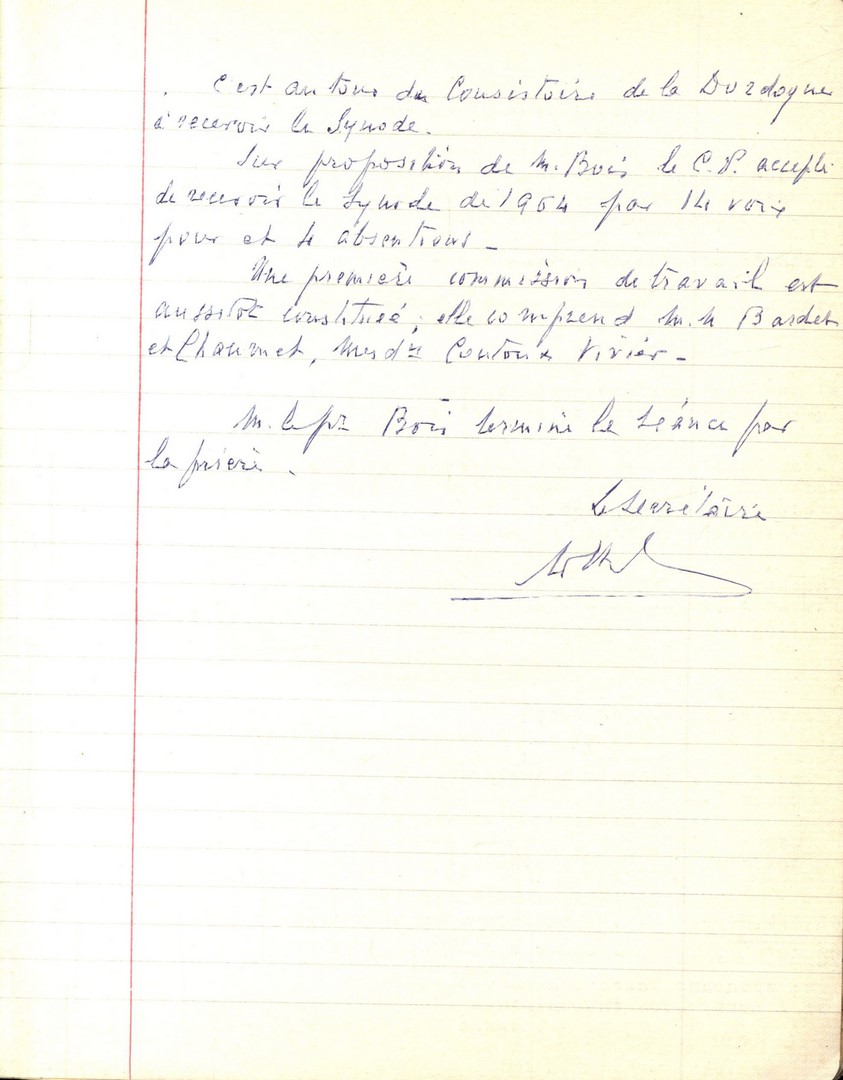 . C'est au tour du Consistoire de la Dordogne
à recevoir le Synode.
Sur proposition de M. Bois le C.P. accepte
de recevoir le Synode de 1964 par 14 voix
pour et 4 absentions _
Une première commission de travail est
aussitôt constituée ; elle comprend M.M Bardet
et Chaumet, Mesd es Vivier _
M. le pr Bois termine la séance par
la prière .
Le Secrétaire